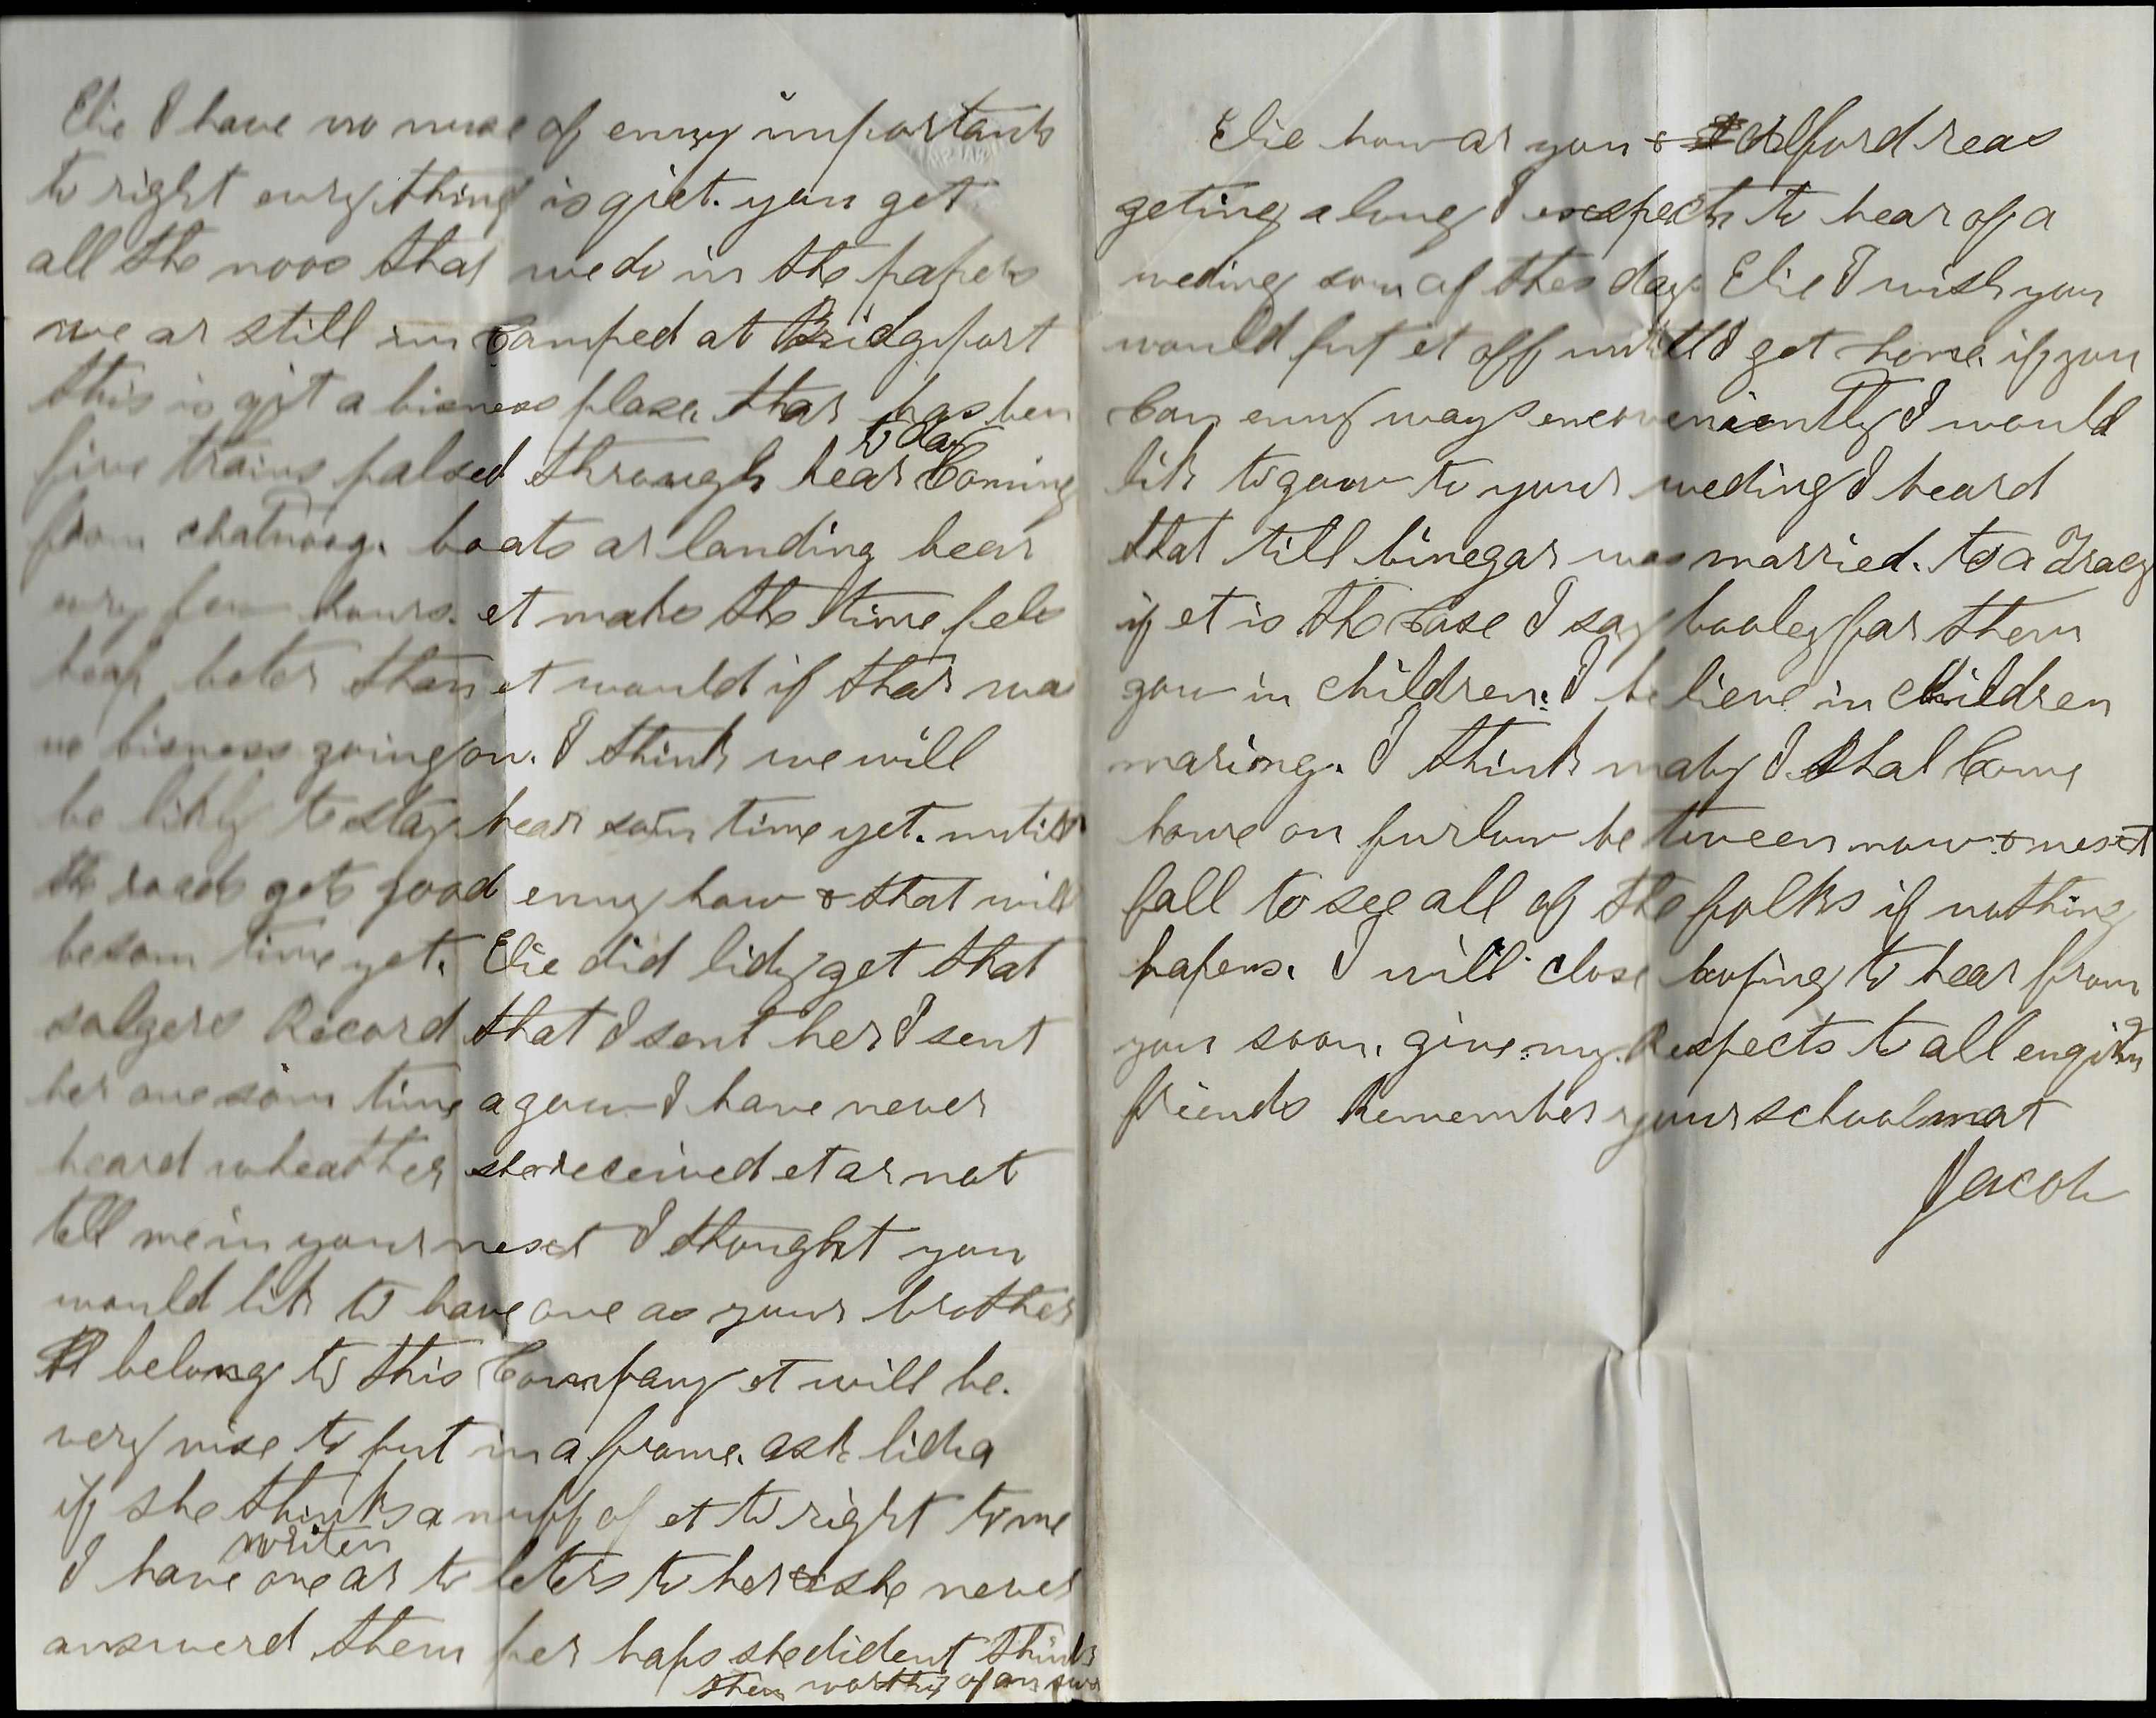 Elie I have no nuse of enny importants
to right evrything is qiet. you get
all the noos that we do in the papers
we ar still in Camped at Bridgeport
this is qit a bisness plase. thar has ben
five trains passed through hear to day Coming
from chatnoog. boats ar landing hear
evry few hours. et maks the time pels
heap beter than et would if thar was
no bisness going on. I think we will
be likly to stay hear som time yet. untill
the roads gets good enny how & that will
be som time yet. Elie did lidy get that
solgers Record that I sent her I sent
her one som time agow I have never
heard wheather she received et ar not
tell me in your next I thought you
would lik to have one as your brother
belong to this Company et will be.
very nise to put in a frame. ask lidia
if she thinks a nuff of et to right to me
I have writen one ar to leters to her & she never
answerd them per haps she dident think
them worthy of an swer
Elie how ar you & Alford reas
geting along I exspects to hear of a
weding som of thes days Elie I wish you
would put et off untill I get home. if you
Can enny ways enconveniently I would
lik to gow to your weding I heard
that till binegar was married. to a Tracy
if et is the Case I say booley for them
gow in children. I be lieve in Children
maring. I think maby I shal Come
home on furlow be tween now & next
fall to see all of the folks if nothing
hapens. I will close hoping to hear from
you soon. give my Respects to all enquiring
friends Remember your schoolmat
Jacob